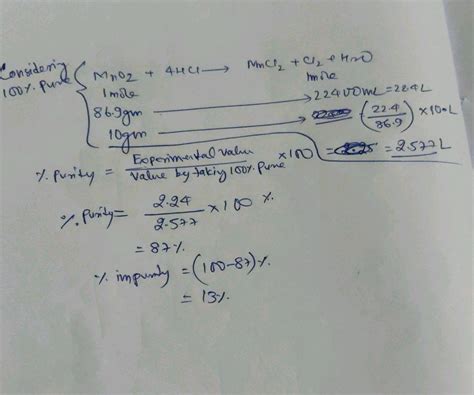 Considering 100%. pure
MnO2 + 4HCl → MnCl2 + Cl2 + H2O
1mole 1mole
86.9gm → 22400mL = 22.4L
10gm → (22.4/86.9) × 10 L
= 2.577L
%. purity = Experimental Value / Value by taking 100%. pure × 100
%. Purity = 2.24 / 2.577 × 100 %.
= 87%.
%. impurity = (100-87)%.
= 13%.